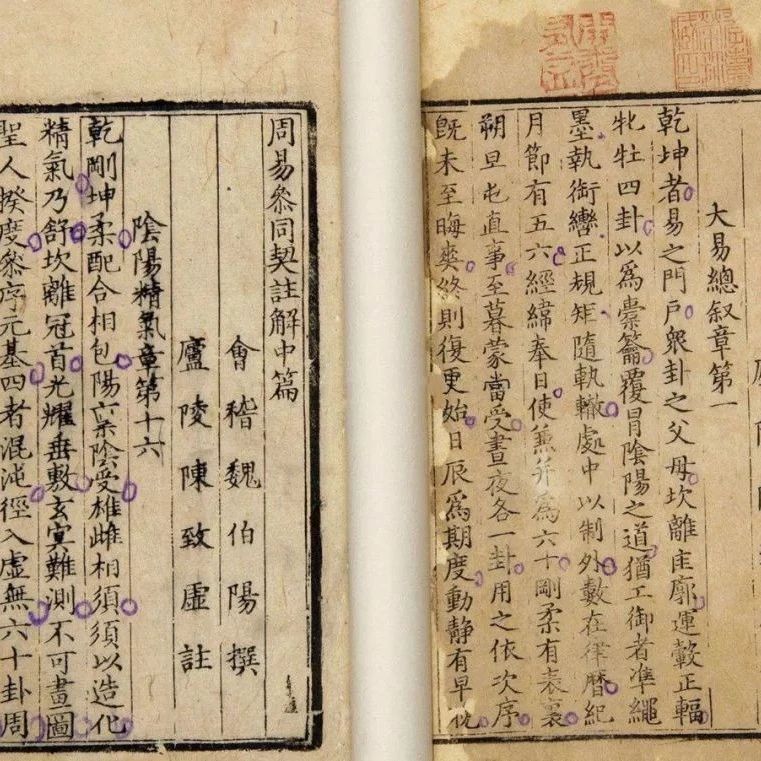 大易總叙章第一
乾坤者易之門戶衆卦之父母坎離匡廓運轂正輻
牝牡四卦以爲橐籥覆冒陰陽之道猶工御者凖繩
墨執銜轡正規矩隨軌轍處中以制外數在律曆紀
月節有五六經緯奉日使兼并爲六十剛柔有表裏
朔旦屯直事至暮蒙當受晝夜各一卦用之依次序
旣未至晦爽終則復更始日辰爲期度動靜有早晚
周易叅同契註解中篇
會稽魏伯陽撰
廬陵陳致虛註
陰陽精氣章第十六
乾剛坤柔配合相包陽禀陰受雄雌相須須以造化
精氣乃舒坎離冠首光耀垂敷玄冥難測不可畫圖
聖人揆度叅序元基四者混沌徑入虛無六十卦周